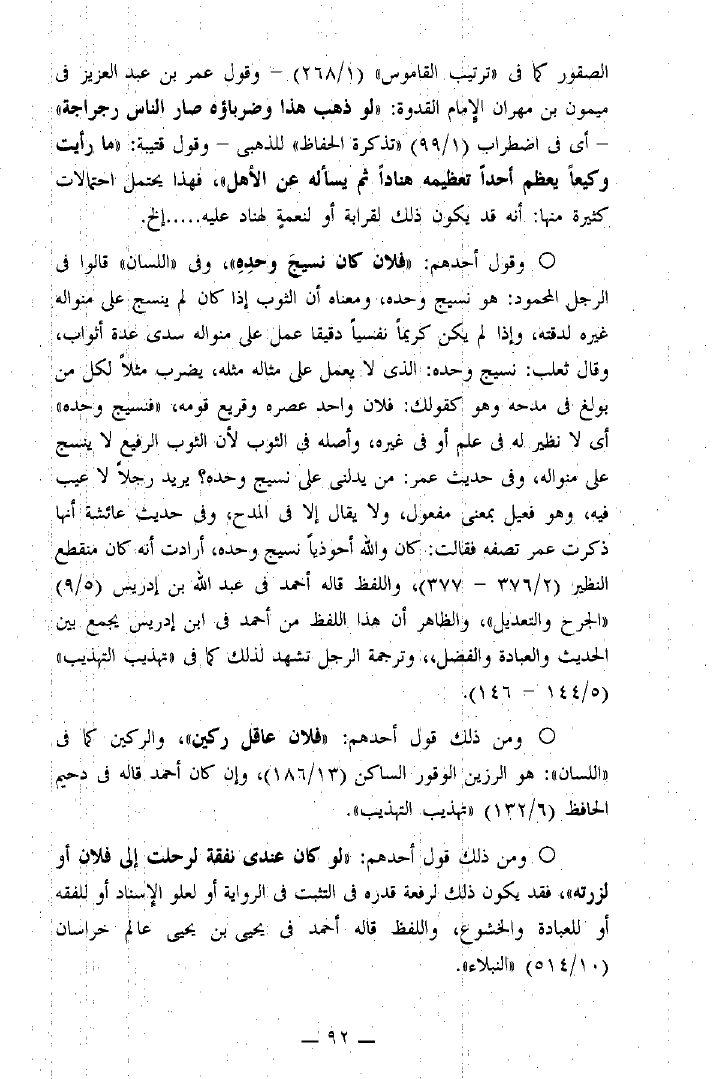 الصقور كما فى «ترتيب القاموس» (٢٦٨/١) – وقول عمر بن عبد العزيز فى
ميمون بن مهران الإمام القدوة: «لو ذهب هذا وضرباؤه صار الناس رجراجة»
– أى فى اضطراب (٩٩/١) «تذكرة الحفاظ» للذهبى – وقول قتيبة: «ما رأيت
وكيعاً يعظم أحداً تعظيمه هناداً ثم يسأله عن الأهل»، فهذا يحتمل احتمالات
كثيرة منها: أنه قد يكون ذلك لقرابة أو لنعمةٍ لهناد عليه.....إلخ.
○ وقول أحدهم: «فلان كان نسيجَ وحدِهِ»، وفى «اللسان» قالوا فى
الرجل المحمود: هو نسيج وحده، ومعناه أن الثوب إذا كان لم ينسج على منواله
غيره لدقته، وإذا لم يكن كريماً نفسياً دقيقا عمل على منواله سدى عدة أثواب،
وقال ثعلب: نسيج وحده: الذى لا يعمل على مثاله مثله، يضرب مثلاً لكل من
بولغ فى مدحه وهو كقولك: فلان واحد عصره وقريع قومه، «فنسيج وحده»
أى لا نظير له فى علم أو فى غيره، وأصله فى الثوب لأن الثوب الرفيع لا ينسج
على منواله، وفى حديث عمر: من يدلنى على نسيج وحده؟ يريد رجلاً لا عيب
فيه، وهو فعيل بمعنى مفعول، ولا يقال إلا فى المدح، وفى حديث عائشة أنها
ذكرت عمر تصفه فقالت: كان والله أحوذياً نسيج وحده، أرادت أنه كان منقطع
النظير (٣٧٦/٢ – ٣٧٧)، واللفظ قاله أحمد فى عبد الله بن إدريس (٩/٥)
«الجرح والتعديل»، والظاهر أن هذا اللفظ من أحمد فى ابن إدريس يجمع بين
الحديث والعبادة والفضل،، وترجمة الرجل تشهد لذلك كما فى «تهذيب التهذيب»
(١٤٤/٥ – ١٤٦).
○ ومن ذلك قول أحدهم: «فلان عاقل ركين»، والركين كما فى
«اللسان»: هو الرزين الوقور الساكن (١٨٦/١٣)، وإن كان أحمد قاله فى دحيم
الحافظ (١٣٢/٦) «تهذيب التهذيب».
○ ومن ذلك قول أحدهم: «لو كان عندى نفقة لرحلت إلى فلان أو
لزرته»، فقد يكون ذلك لرفعة قدره فى التثبت فى الرواية أو لعلو الإسناد أو للفقه
أو للعبادة والخشوع، واللفظ قاله أحمد فى يحيى بن يحيى عالم خراسان
(٥١٤/١٠) «النبلاء».
— ٩٢ —